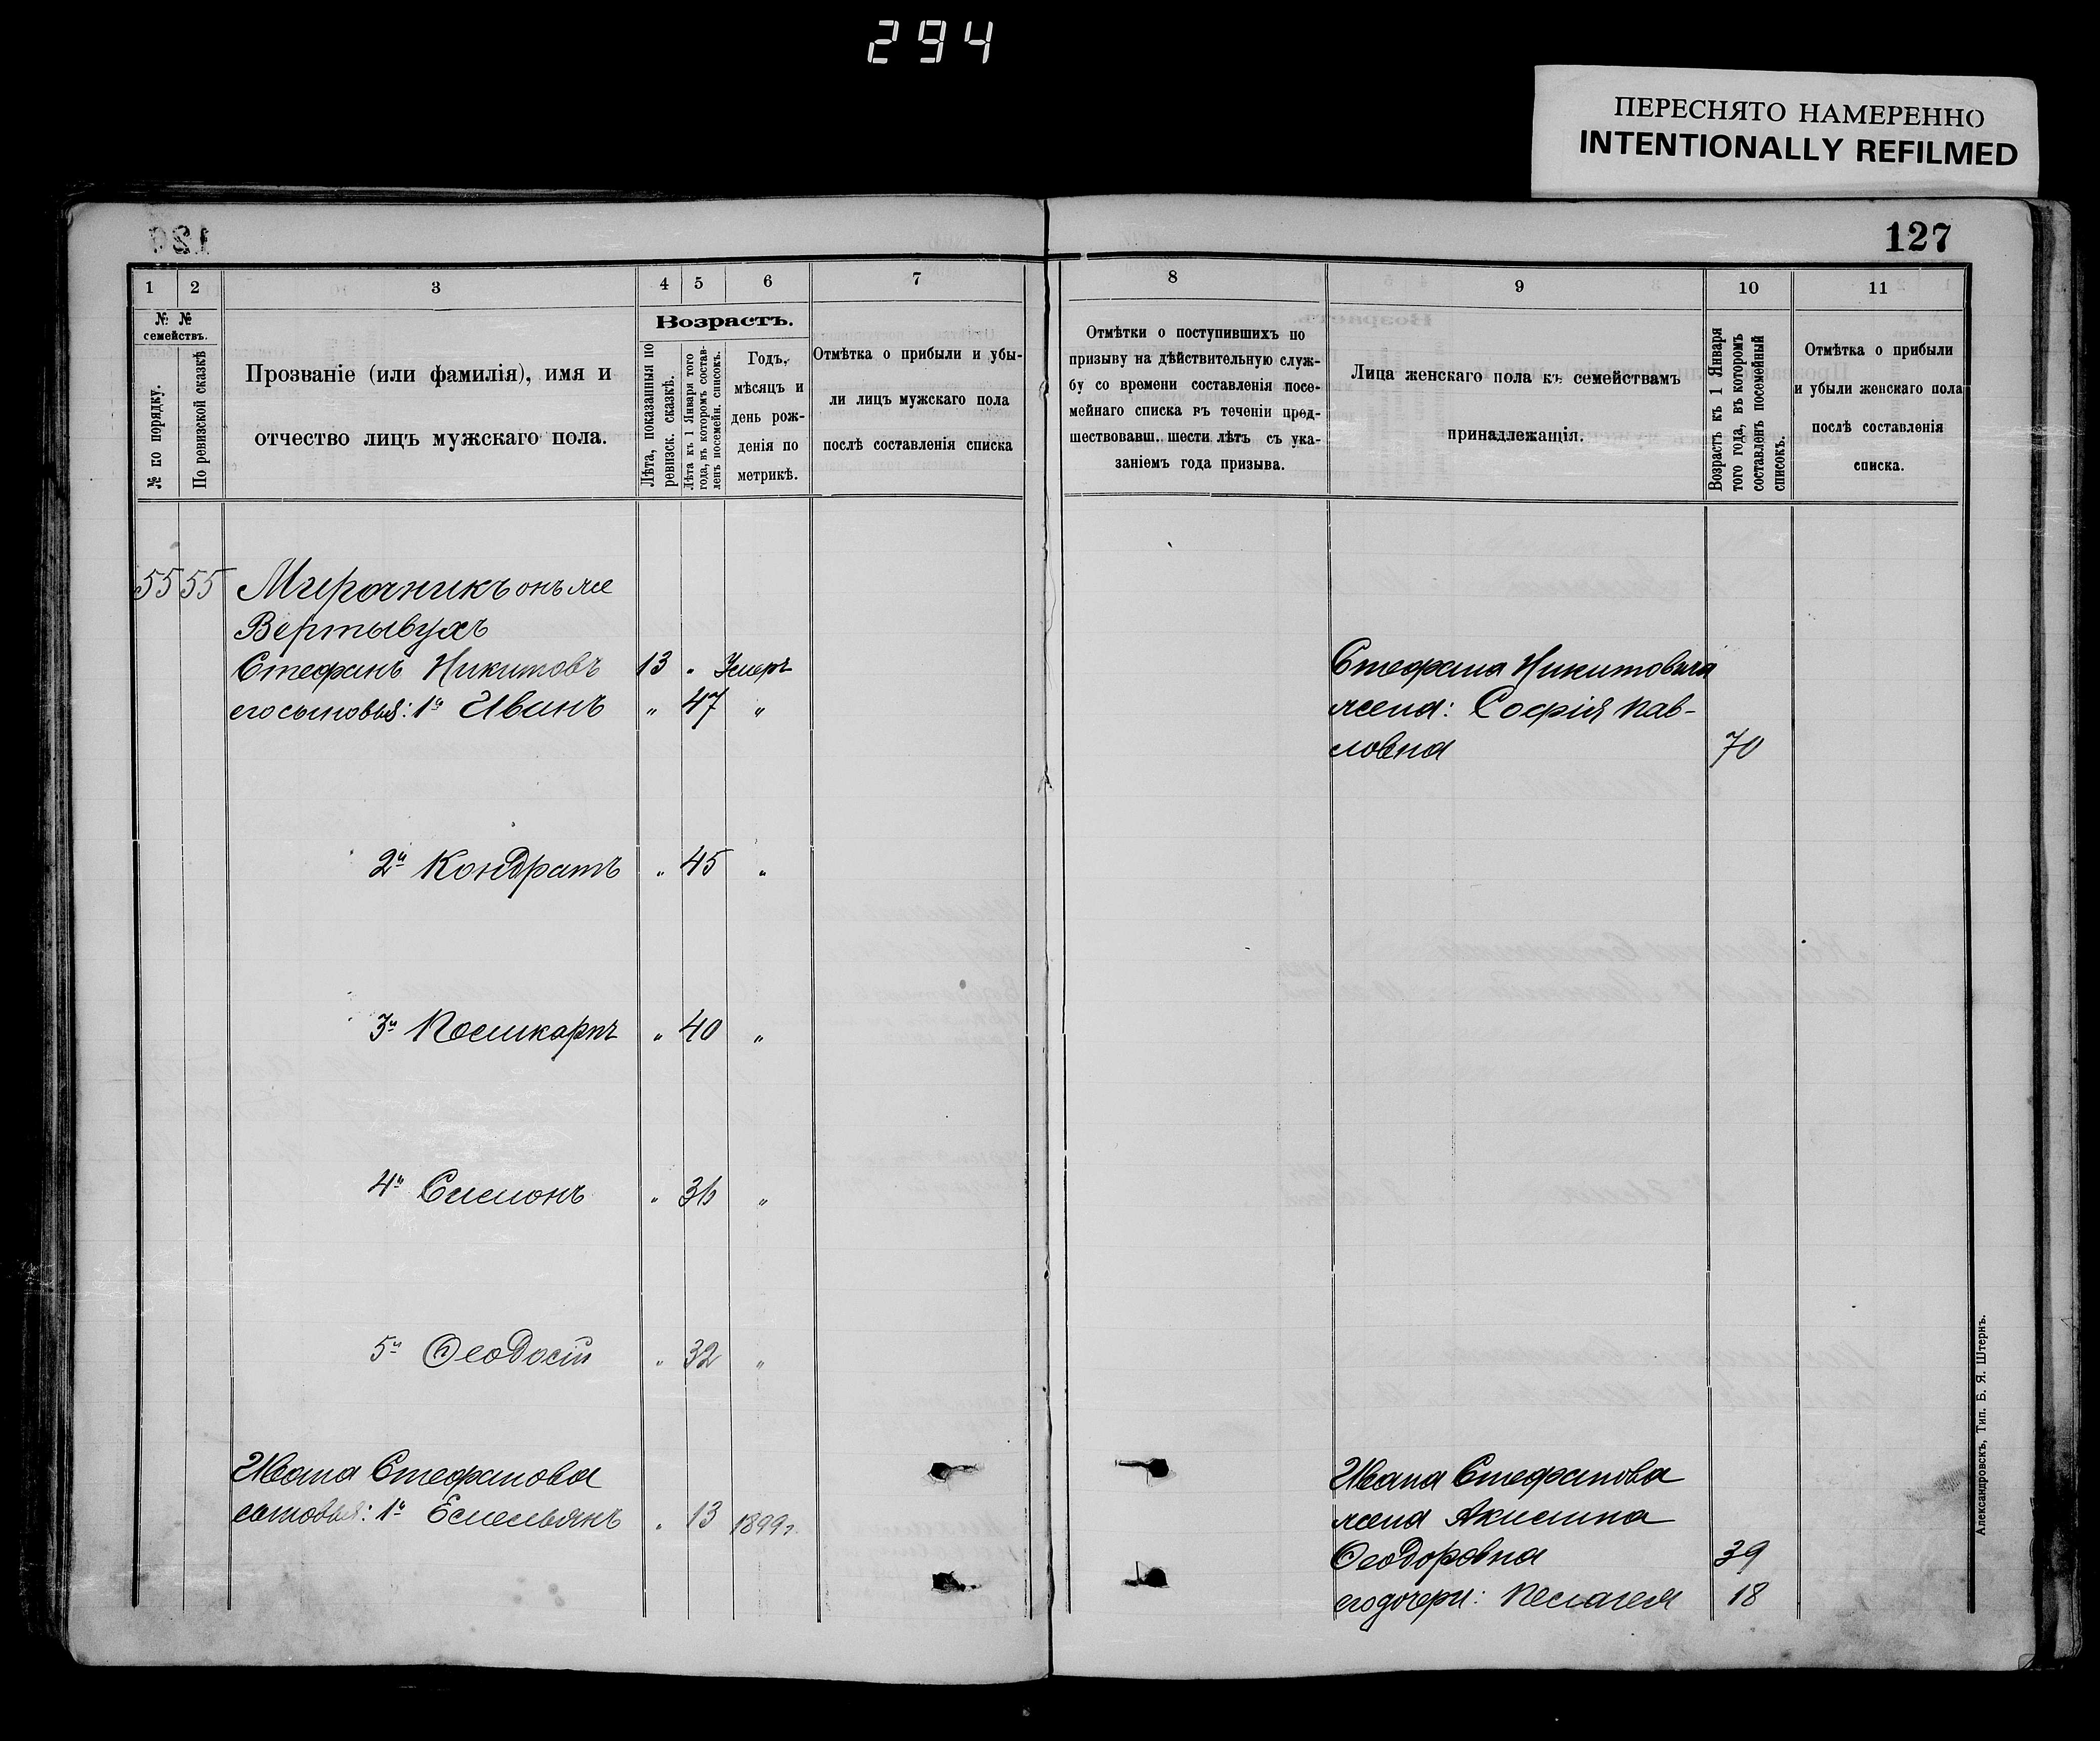 294
ПЕРЕСНЯТО НАМЕРЕННО
INTENTIONALLY REFILMED
127
1 2 3 4 5 6 7
№ №
семействъ.
№ по порядку.
По ревизской сказкѣ
Прозваніе (или фамилія), имя и
отчество лицъ мужскаго пола.
Возрастъ.
Лѣта, показанныя по
ревизск. сказкѣ.
Лѣта къ 1 Января того
года, въ которомъ состав-
ленъ посемейн. списокъ.
Годъ,
мѣсяцъ и
день рож-
денія по
метрикѣ.
Отмѣтка о прибыли и убы-
ли лицъ мужскаго пола
послѣ составленія списка
55 55 Мирочникъ онъ же
Вертывухъ
Стефанъ Никитовъ 13 „ Умеръ
его сыновья: 1й Иванъ „ 47 „
2й Кондратъ „ 45 „
3й Поликарпъ „ 40 „
4й Симонъ „ 36 „
5й Ѳеодосій „ 32 „
Ивана Стефанова
сыновья: 1й Емельянъ „ 13 1899г.
8 9 10 11
Отмѣтки о поступившихъ по
призыву на дѣйствительную служ-
бу со времени составленія посе-
мейнаго списка въ теченіи пред-
шествовавш. шести лѣтъ съ ука-
заніемъ года призыва.
Лица женскаго пола къ семействамъ
принадлежащія.
Возрастъ къ 1 Января
того года, въ которомъ
составленъ посемейный
списокъ.
Отмѣтка о прибыли
и убыли женскаго пола
послѣ составленія
списка.
Стефана Никитовича
жена: Софія Пав-
ловна 70
Ивана Стефанова
жена Акилина
Ѳеодоровна 39
его дочери: Пелагея 18
Александровскъ, Тип. Б. Я. Штернъ.